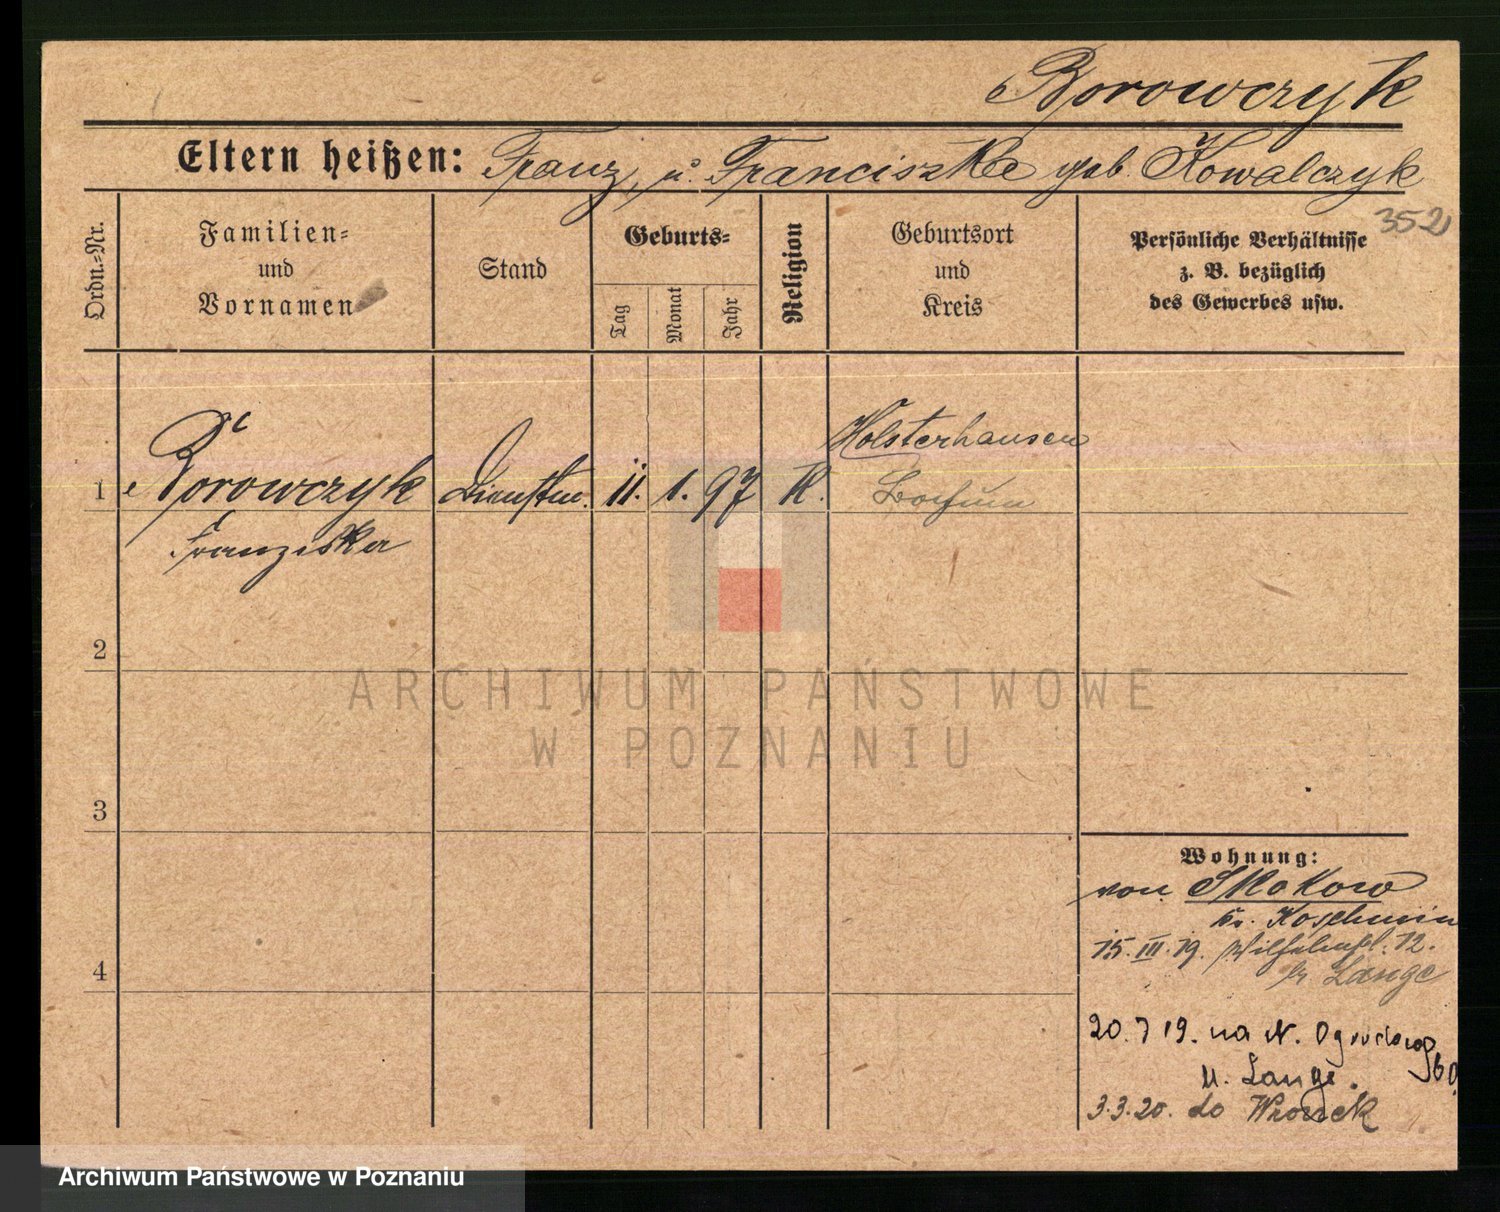 Borowczyk
Eltern heißen: Franz, u. Franciszka geb. Kowalczyk
352
Ordn.=Nr.
Familien=
und
Vornamen
Stand
Geburts=
Tag
Monat
Jahr
Religion
Geburtsort
und
Kreis
Persönliche Verhältnisse
z. B. bezüglich
des Gewerbes usw.
1 Borowczyk
Franziska
Dienstm.
11. 1. 97
K.
Holsterhausen
Bochum
2
3
4
Wohnung:
von Skokow
Kr. Koschmin
15. III. 19. Wilhelmpl. 12.
b/ Lange
20. 7 19. na N. Ogrodową
u. Lange.
3.3.20. do Wronek
ARCHIWUM PAŃSTWOWE
W POZNANIU
Archiwum Państwowe w Poznaniu